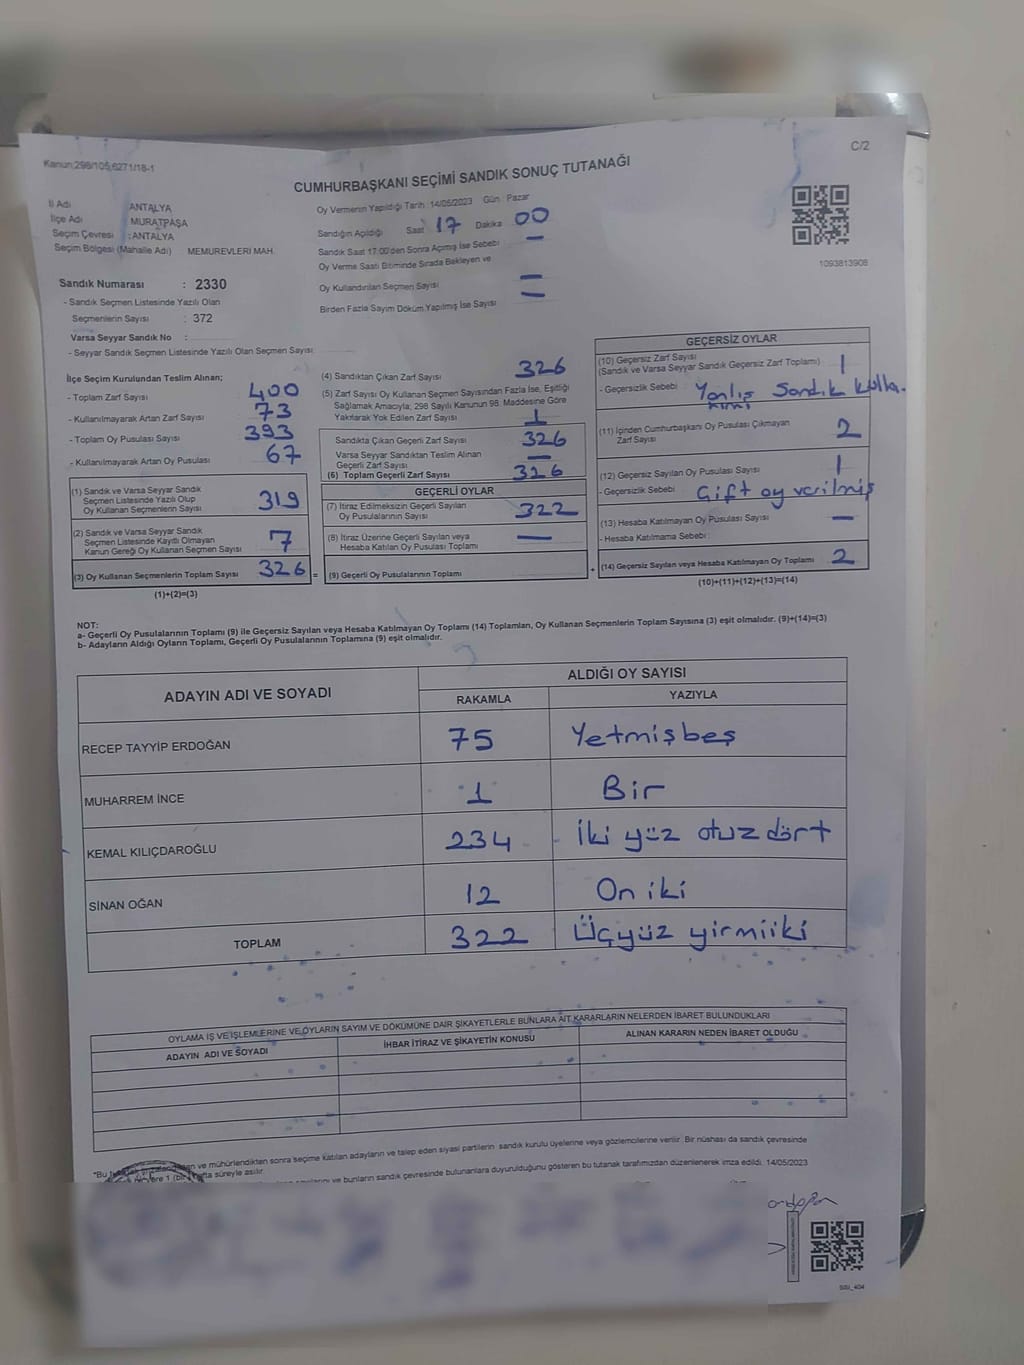 Kanun:298/105,6271/18-1
C/2
CUMHURBAŞKANI SEÇİMİ SANDIK SONUÇ TUTANAĞI
İl Adı ANTALYA
İlçe Adı MURATPAŞA
Seçim Çevresi : ANTALYA
Seçim Bölgesi (Mahalle Adı) MEMUREVLERİ MAH.
Oy Vermenin Yapıldığı Tarih 14/05/2023 Gün Pazar
Sandığın Açıldığı Saat 17 Dakika 00
Sandık Saat 17.00'den Sonra Açımış İse Sebebi –
Oy Verme Saati Bitiminde Sırada Bekleyen ve
Oy Kullandırılan Seçmen Sayısı –
Birden Fazla Sayım Döküm Yapılmış İse Sayısı –
1093813908
Sandık Numarası : 2330
- Sandık Seçmen Listesinde Yazılı Olan
Seçmenlerin Sayısı : 372
Varsa Seyyar Sandık No :
- Seyyar Sandık Seçmen Listesinde Yazılı Olan Seçmen Sayısı
İlçe Seçim Kurulundan Teslim Alınan;
- Toplam Zarf Sayısı 400
- Kullanılmayarak Artan Zarf Sayısı 73
- Toplam Oy Pusulası Sayısı 393
- Kullanılmayarak Artan Oy Pusulası 67
(1) Sandık ve Varsa Seyyar Sandık
Seçmen Listesinde Yazılı Olup
Oy Kullanan Seçmenlerin Sayısı 319
(2) Sandık ve Varsa Seyyar Sandık
Seçmen Listesinde Kayıtlı Olmayan
Kanun Gereği Oy Kullanan Seçmen Sayısı 7
(3) Oy Kullanan Seçmenlerin Toplam Sayısı 326 =
(1)+(2)=(3)
(4) Sandıktan Çıkan Zarf Sayısı 326
(5) Zarf Sayısı Oy Kullanan Seçmen Sayısından Fazla İse, Eşitliği
Sağlamak Amacıyla; 298 Sayılı Kanunun 98. Maddesine Göre
Yakılarak Yok Edilen Zarf Sayısı 1
Sandıkta Çıkan Geçerli Zarf Sayısı 326
Varsa Seyyar Sandıktan Teslim Alınan
Geçerli Zarf Sayısı –
(6) Toplam Geçerli Zarf Sayısı 326
GEÇERLİ OYLAR
(7) İtiraz Edilmeksizin Geçerli Sayılan
Oy Pusulalarının Sayısı 322
(8) İtiraz Üzerine Geçerli Sayılan veya
Hesaba Katılan Oy Pusulası Toplamı –
(9) Geçerli Oy Pusulalarının Toplamı +
GEÇERSİZ OYLAR
(10) Geçersiz Zarf Sayısı
(Sandık ve Varsa Seyyar Sandık Geçersiz Zarf Toplamı) 1
- Geçersizlik Sebebi Yanlış Sandık kulla.
nımı
(11) İçinden Cumhurbaşkanı Oy Pusulası Çıkmayan
Zarf Sayısı 2
(12) Geçersiz Sayılan Oy Pusulası Sayısı 1
- Geçersizlik Sebebi Çift oy verilmiş
(13) Hesaba Katılmayan Oy Pusulası Sayısı –
- Hesaba Katılmama Sebebi:
(14) Geçersiz Sayılan veya Hesaba Katılmayan Oy Toplamı 2
(10)+(11)+(12)+(13)=(14)
NOT:
a- Geçerli Oy Pusulalarının Toplamı (9) ile Geçersiz Sayılan veya Hesaba Katılmayan Oy Toplamı (14) Toplamları, Oy Kullanan Seçmenlerin Toplam Sayısına (3) eşit olmalıdır. (9)+(14)=(3)
b- Adayların Aldığı Oyların Toplamı, Geçerli Oy Pusulalarının Toplamına (9) eşit olmalıdır.
ADAYIN ADI VE SOYADI
ALDIĞI OY SAYISI
RAKAMLA YAZIYLA
RECEP TAYYİP ERDOĞAN 75 Yetmişbeş
MUHARREM İNCE 1 Bir
KEMAL KILIÇDAROĞLU 234 İki yüz otuz dört
SİNAN OĞAN 12 On iki
TOPLAM 322 Üçyüz yirmiiki
OYLAMA İŞ VE İŞLEMLERİNE VE OYLARIN SAYIM VE DÖKÜMÜNE DAİR ŞİKAYETLERLE BUNLARA AİT KARARLARIN NELERDEN İBARET BULUNDUKLARI
ADAYIN ADI VE SOYADI İHBAR İTİRAZ VE ŞİKAYETİN KONUSU ALINAN KARARIN NEDEN İBARET OLDUĞU
ve mühürlendikten sonra seçime katılan adayların ve talep eden siyasi partilerin sandık kurulu üyelerine veya gözlemcilerine verilir. Bir nüshası da sandık çevresinde
1 (bir) hafta süreyle asılır.
ve bunların sandık çevresinde bulunanlara duyurulduğunu gösteren bu tutanak tarafımızdan düzenlenerek imza edildi. 14/05/2023